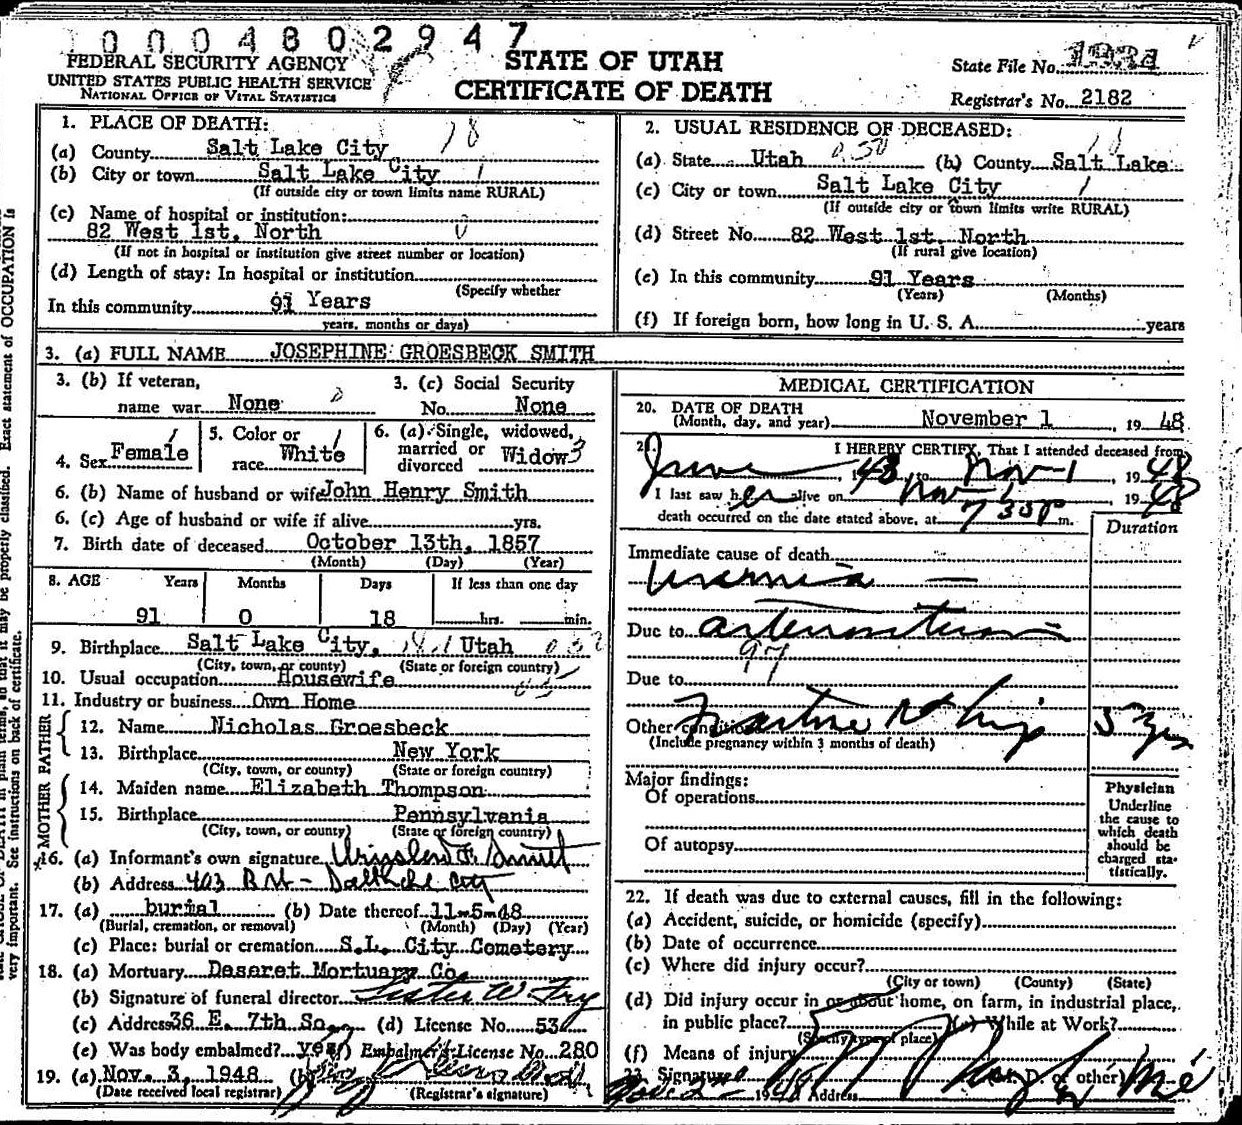 0004802947
FEDERAL SECURITY AGENCY
UNITED STATES PUBLIC HEALTH SERVICE
NATIONAL OFFICE OF VITAL STATISTICS
STATE OF UTAH
CERTIFICATE OF DEATH
State File No.
Registrar's No. 2182
1. PLACE OF DEATH:
(a) County Salt Lake City 18
(b) City or town Salt Lake City 1
(If outside city or town limits name RURAL)
(c) Name of hospital or institution:
82 West 1st. North 0
(If not in hospital or institution give street number or location)
(d) Length of stay: In hospital or institution
(Specify whether
In this community 91 Years
years, months or days)
2. USUAL RESIDENCE OF DECEASED:
(a) State Utah (b) County Salt Lake
(c) City or town Salt Lake City 1
(If outside city or town limits write RURAL)
(d) Street No. 82 West 1st. North
(If rural give location)
(e) In this community 91 Years
(Years) (Months)
(f) If foreign born, how long in U. S. A. years
3. (a) FULL NAME JOSEPHINE GROESBECK SMITH
3. (b) If veteran,
name war None
3. (c) Social Security
No. None
4. Sex Female 1
5. Color or
race White 1
6. (a) Single, widowed,
married or
divorced Widow 3
6. (b) Name of husband or wife John Henry Smith
6. (c) Age of husband or wife if alive yrs.
7. Birth date of deceased October 13th, 1857
(Month) (Day) (Year)
8. AGE Years Months Days If less than one day
91 0 18 hrs. min.
9. Birthplace Salt Lake City, Utah
(City, town, or county) (State or foreign country)
10. Usual occupation Housewife
11. Industry or business Own Home
FATHER
12. Name Nicholas Groesbeck
13. Birthplace New York
(City, town, or county) (State or foreign country)
MOTHER
14. Maiden name Elizabeth Thompson
15. Birthplace Pennsylvania
(City, town, or county) (State or foreign country)
16. (a) Informant's own signature
(b) Address 403 B St - Salt Lake City
17. (a) burial (b) Date thereof 11-5-48
(Burial, cremation, or removal) (Month) (Day) (Year)
(c) Place: burial or cremation S.L. City Cemetery
18. (a) Mortuary Deseret Mortuary Co.
(b) Signature of funeral director
(c) Address 36 E. 7th So. (d) License No. 530
(e) Was body embalmed? yes (f) Embalmer's License No. 280
19. (a) Nov. 3, 1948 (b)
(Date received local registrar) (Registrar's signature)
MEDICAL CERTIFICATION
20. DATE OF DEATH
(Month, day, and year) November 1, 1948
21. I HEREBY CERTIFY, That I attended deceased from
June, 1943, to Nov-1, 1948
I last saw her alive on Nov 1, 1948
death occurred on the date stated above, at 7 30 P m.
Duration
Immediate cause of death
Uremia
Due to
97
Due to
Other conditions Fracture Rt hip 5 yrs
(Include pregnancy within 3 months of death)
Major findings:
Of operations
Of autopsy
Physician
Underline
the cause to
which death
should be
charged sta-
tistically.
22. If death was due to external causes, fill in the following:
(a) Accident, suicide, or homicide (specify)
(b) Date of occurrence
(c) Where did injury occur?
(City or town) (County) (State)
(d) Did injury occur in or about home, on farm, in industrial place,
in public place? (e) While at Work?
(Specify type of place)
(f) Means of injury
23. Signature (M. D. or other)
Nov. 2nd 1948 Address
Exact statement of OCCUPATION is
it may be properly classified.
See instructions on back of certificate.
very important.